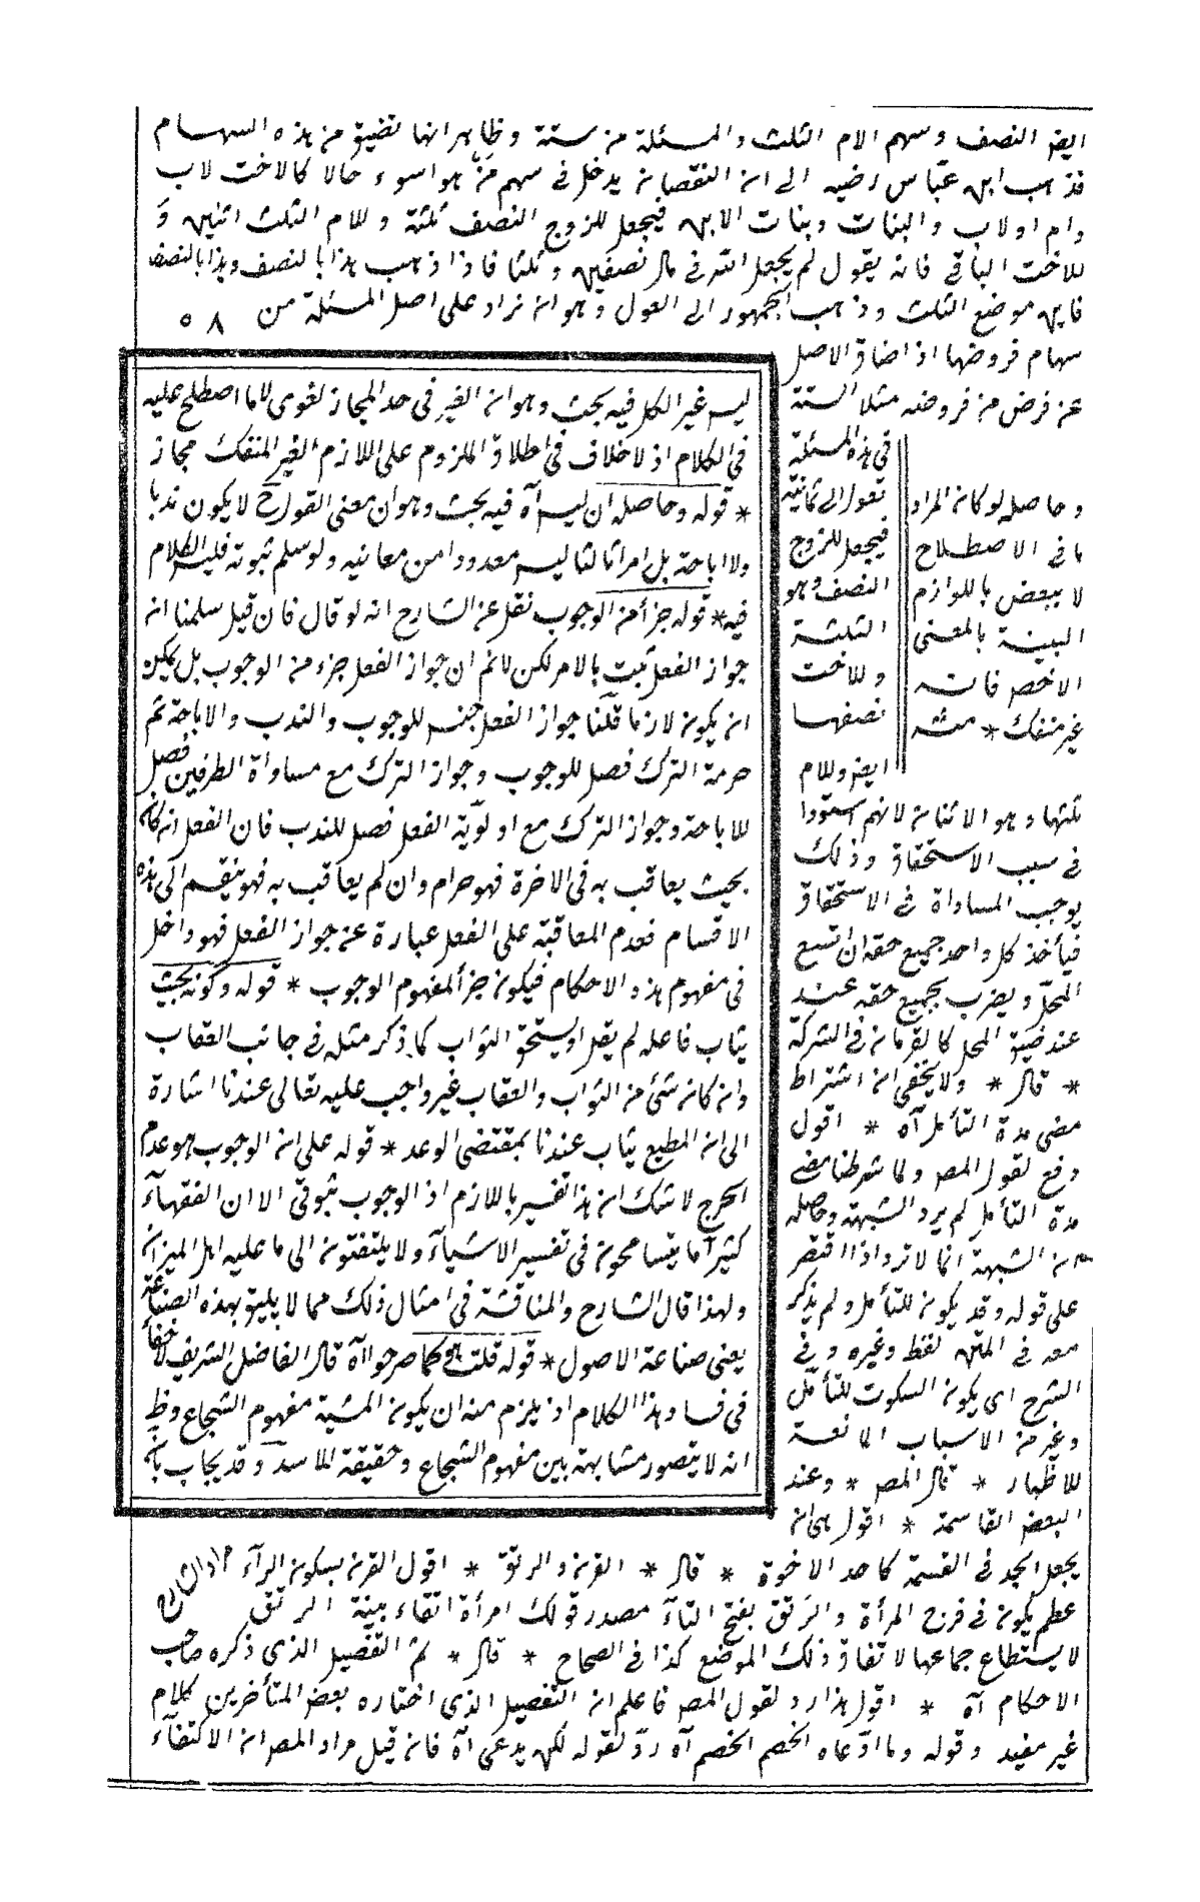 ايضا النصف وسهم الام الثلث والمسئلة من ستة وظاهر انها تضيق من هذه السهام
فذهب ابن عباس رضيه الى ان النقصان يدخل فى سهم من هو اسوء حالا كالاخت لاب
وام او لاب والبنات وبنات الابن فيجعل للزوج النصف ثلثة وللام الثلث اثنين و
للاخت الباقى فانه يقول لم يجعل الله فى مال نصفين وثلثا فاذا ذهب هذا بالنصف وهذا بالنصف
فاين موضع الثلث وذهب الجمهور الى العول وهو ان زاد على اصل المسئلة من ٥٨
سهام فروضها اذا ضاق الاصل
عن فرض من فروضه مثلا الستة
فى هذه المسئلة
تعول الى ثمانية
فيجعل للزوج
النصف وهو
الثلثة
وللاخت
نصفها
ايضا وللام
ثلثها وهو الاثنان لانهم استووا
فى سبب الاستحقاق وذلك
يوجب المساواة فى الاستحقاق
فيأخذ كل واحد جميع حقه ان اتسع
المحل ويضرب بجميع حقه عند
عند ضيق المحل كالغرماء فى التركة
* قال * ولا يخفى ان اشتراط
مضى مدة التأمل آه * اقول
دفع لقول المص ولما شرطنا مضى
مدة التأمل لم يرد الشبهة وحاصله
ان الشبهة انما لا ترد اذا اقتصر
على قوله وقد يكون للتأمل ولم يذكر
معه فى المتن لفظ وغيره وفى
الشرح اى يكون السكوت للتأمل
وغيره من الاسباب المانعة
للاظهار * قال المص * وعند
البعض القاسمة * اقول هى ان
يجعل الجد فى القسمة كاحد الاخوة * قال * القرن والرتق * اقول القرن بسكون الرآء
عظم يكون فى فرج المرأة والرتق بفتح التآء مصدر قولك امرأة رتقاء بينة الرتق
لا يستطاع جماعها لارتفاق ذلك الموضع كذا فى الصحاح * قال * ثم التفصيل الذى ذكره صاحب
الاحكام آه * اقول هذا رد لقول المص فاعلم ان التفصيل الذى اختاره بعض المتأخرين كلام
غير مفيد وقوله وما ادعاه الخصم آه رد لقوله لكن يدعى آه فان قيل مراد المص ان الاكتفآء
وحاصله لو كان المراد
ما فى الاصطلاح
لا ببعض باللوازم
البينة بالمعنى
الاخص فانه
غير منفك * منه
ليس غير الكل فيه بحث وهو ان الغير فى حد المجاز لغوى لا ما اصطلح عليه
فى الكلام اذ لا خلاف فى اطلاق الملزوم على اللازم الغير المنفك مجاز
* قوله وحاصله ان ليس آه فيه بحث وهو ان معنى القول ح لا يكون ندبا
ولا اباحة بل امرا ثالثا ليس معدودا من معانيه ولو سلم ثبوته فليس الكلام
فيه * قوله جزأ من الوجوب نقل عن الشارح انه لو قال فان قيل سلمنا ان
جواز الفعل ثبت بالامر لكن لانم ان جواز الفعل جزء من الوجوب بل يمكن
ان يكون لازما قلنا جواز الفعل جنس للوجوب والندب والاباحة ثم
حرمة الترك فصل للوجوب وجواز الترك مع مساواة الطرفين فصل
للاباحة وجواز الترك مع اولوية الفعل فصل للندب فان الفعل ان كان
بحيث يعاقب به فى الاخرة فهو حرام وان لم يعاقب به فهو منقسم الى هذه
الاقسام فعدم المعاقبة على الفعل عبارة عن جواز الفعل فهو داخل
فى مفهوم هذه الاحكام فيكون جزأ لمفهوم الوجوب * قوله وكونه بحيث
يثاب فاعله لم يقل او يستحق الثواب كما ذكر مثله فى جانب العقاب
وان كان شئ من الثواب والعقاب غير واجب عليه تعالى عندنا اشارة
الى ان المطيع يثاب عندنا بمقتضى الوعد * قوله على ان الوجوب هو عدم
الحرج لا شك ان هذا تفسير باللازم اذ الوجوب ثبوتى الا ان الفقهآء
كثيرا ما يتسامحون فى تفسير الاشيآء ولا يلتفتون الى ما عليه اهل الميزان
ولهذا قال الشارح والمناقشة فى امثال ذلك مما لا يليق بهذه الصناعة
يعنى صناعة الاصول * قوله قلت كما صرحوا آه قال الفاضل الشريف لا خفأ
فى فساد هذا الكلام اذ يلزم منه ان يكون المشبه مفهوم الشجاع وظ
انه لا يتصور مشابهة بين مفهوم الشجاع وحقيقة للاسد وقد يجاب بان
مراد الشارح